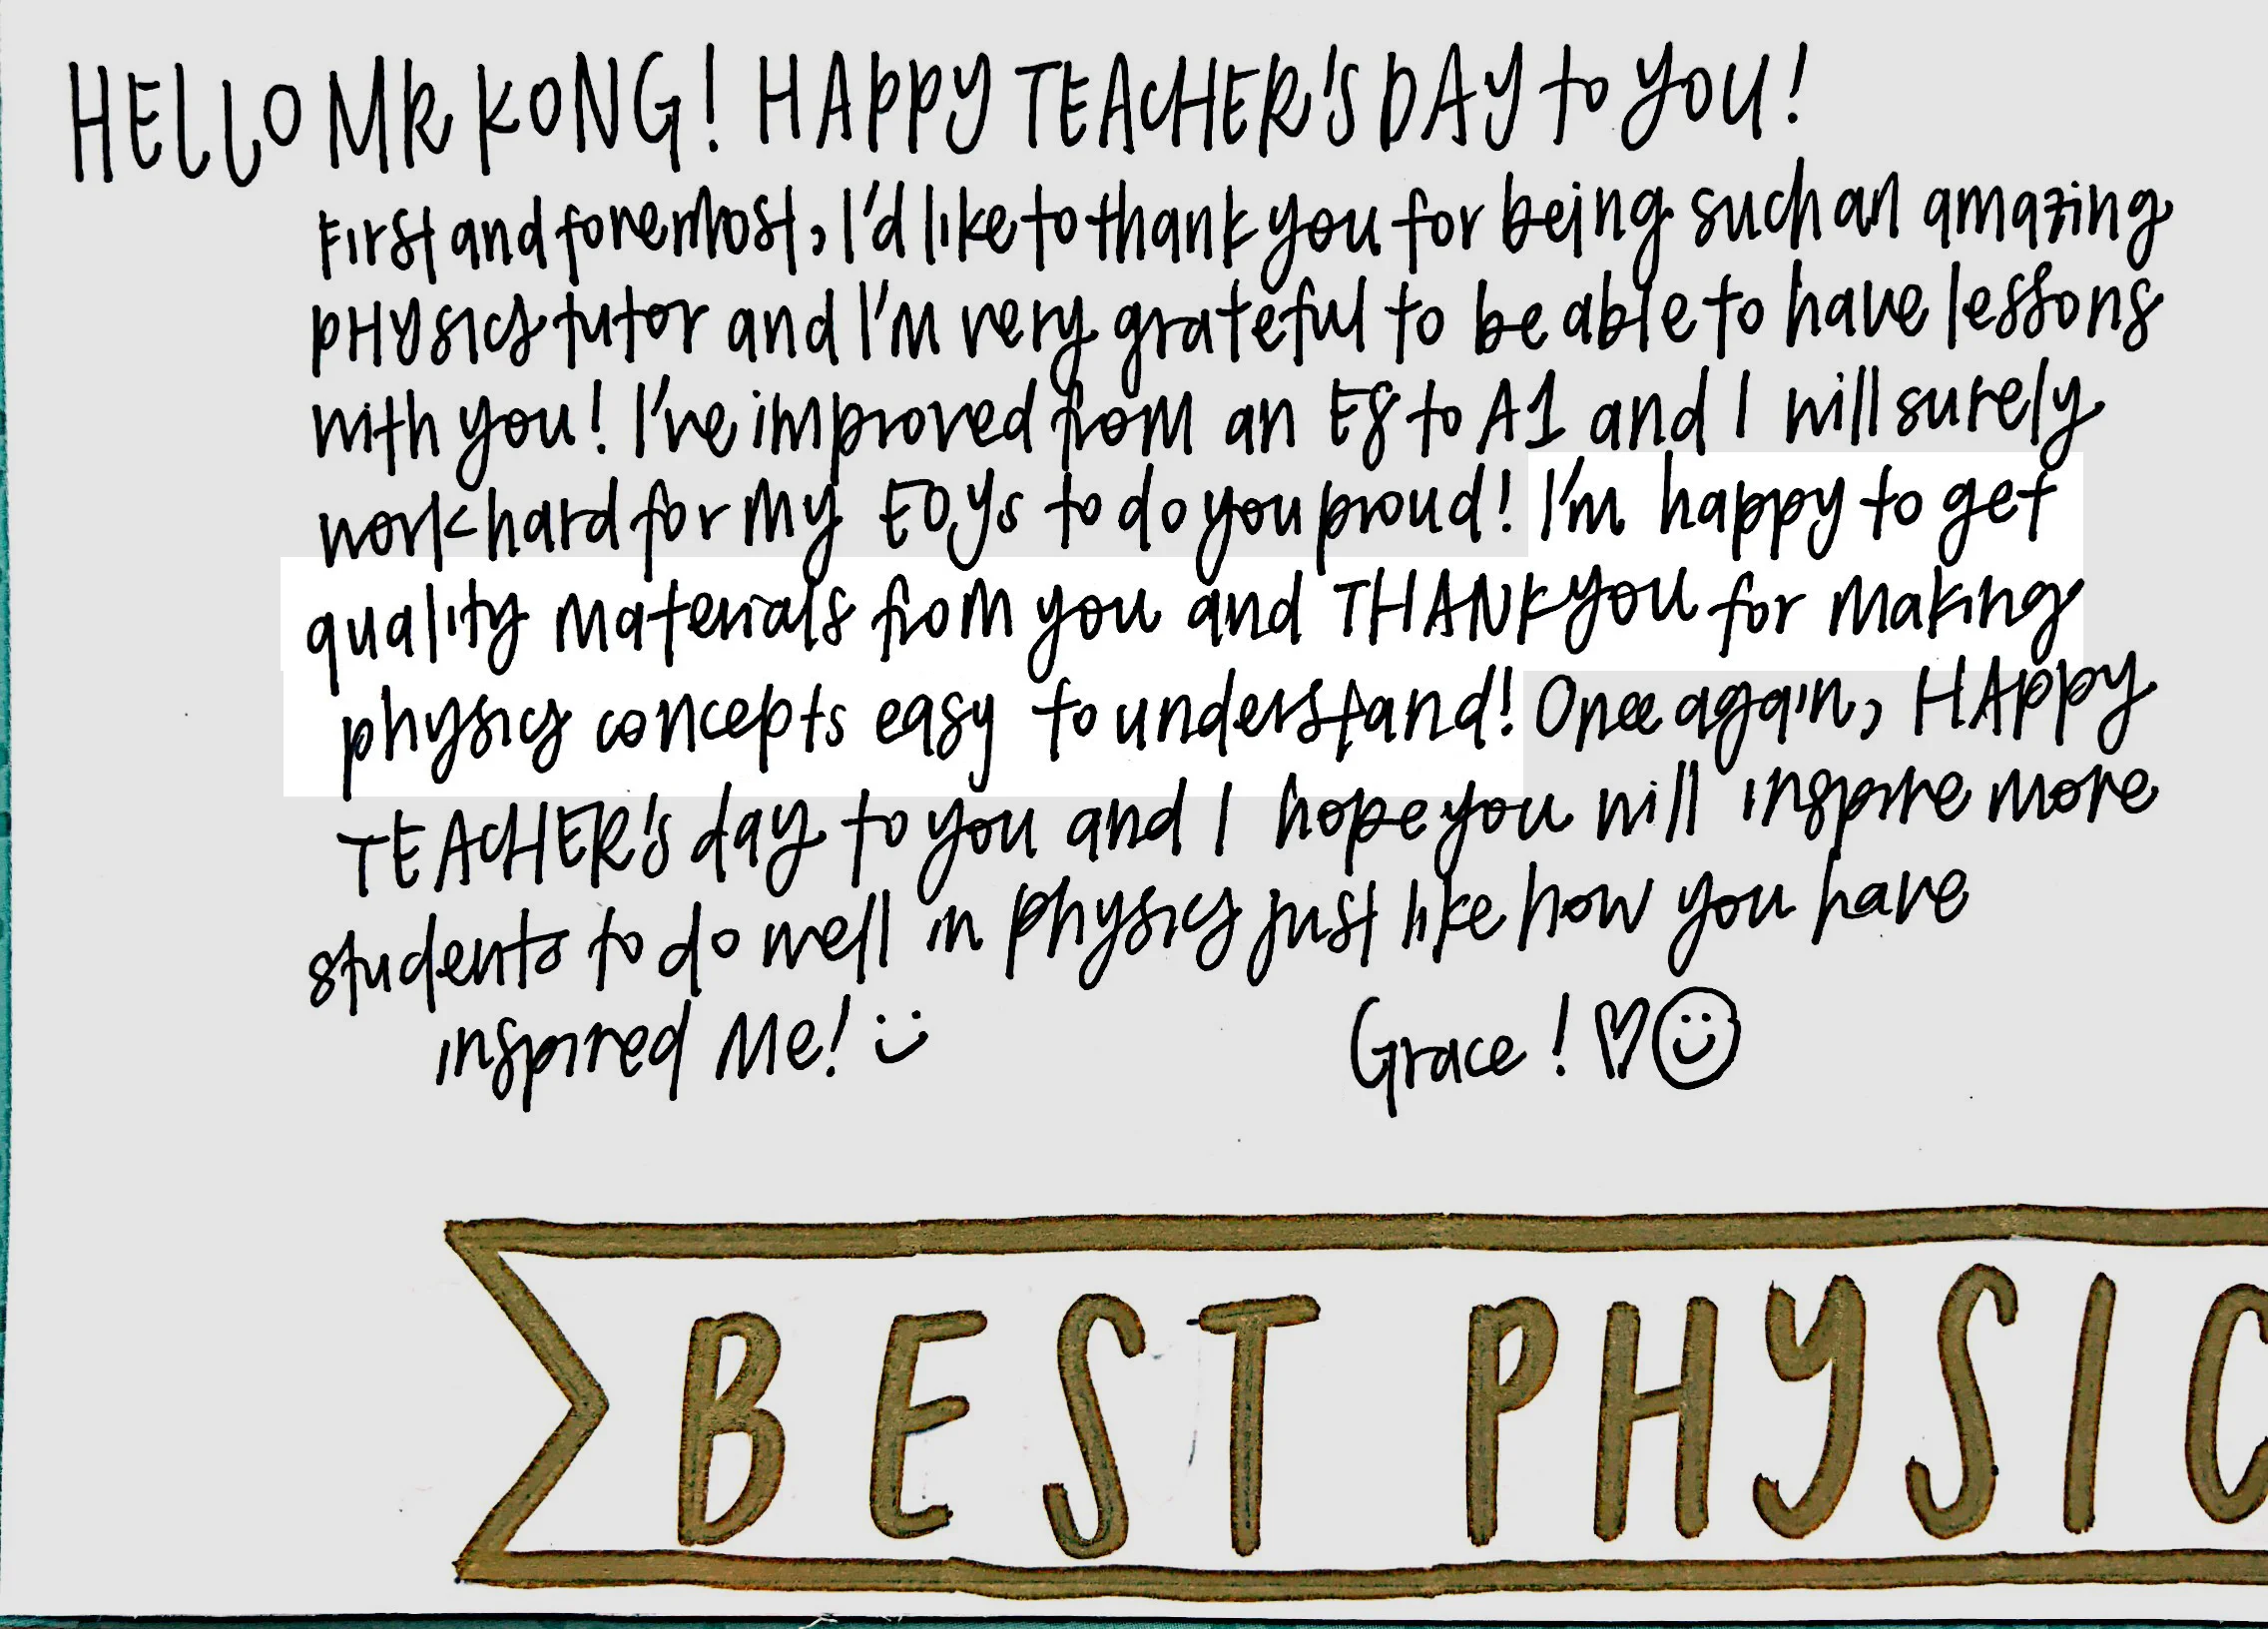 HELLO MR KONG! HAPPY TEACHER'S DAY to YOU!
First and foremost, I'd like to thank you for being such an amazing
PHYSICS tutor and I'm very grateful to be able to have lessons
with you! I've improved from an E8 to A1 and I will surely
work hard for my EOYs to do you proud! I'm happy to get
quality materials from you and THANK YOU for making
physics concepts easy to understand! Once again, HAPPY
TEACHER'S day to you and I hope you will inspire more
students to do well in physics just like how you have
inspired Me! :)
Grace! ♡☺
BEST PHYSIC